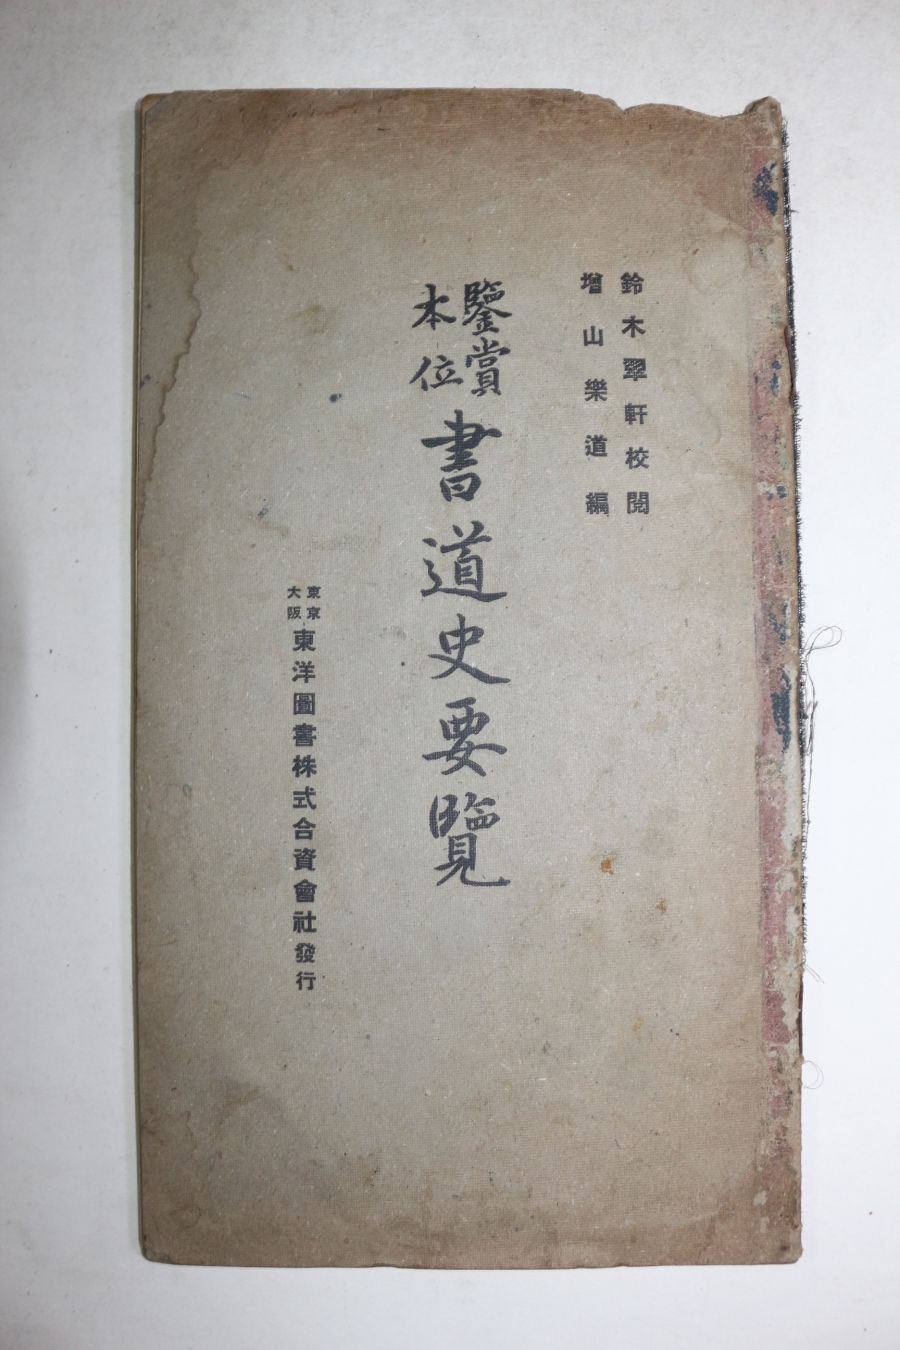 鈴木翠軒校閲
增山樂道編
鑒賞
本位
書道史要覽
東京
大阪
東洋圖書株式合資會社發行